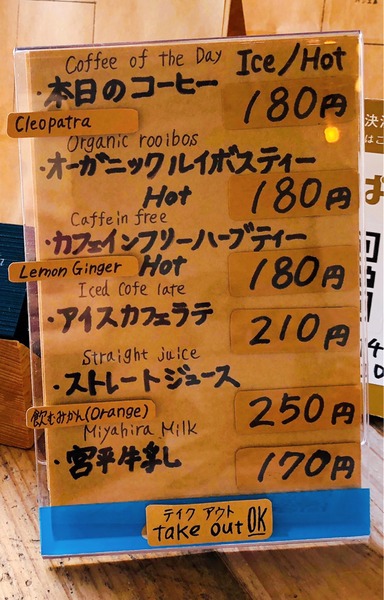 Coffee of the Day Ice/Hot
・本日のコーヒー 180円
Cleopatra
Organic rooibos
・オーガニックルイボスティー
Hot 180円
Caffein free
・カフェインフリーハーブティー
Lemon Ginger Hot 180円
Iced Cofe late
・アイスカフェラテ 210円
Straight juice
・ストレートジュース
飲むみかん(Orange) 250円
Miyahira Milk
・宮平牛乳 170円
テイクアウト
take out OK
決済
はこ